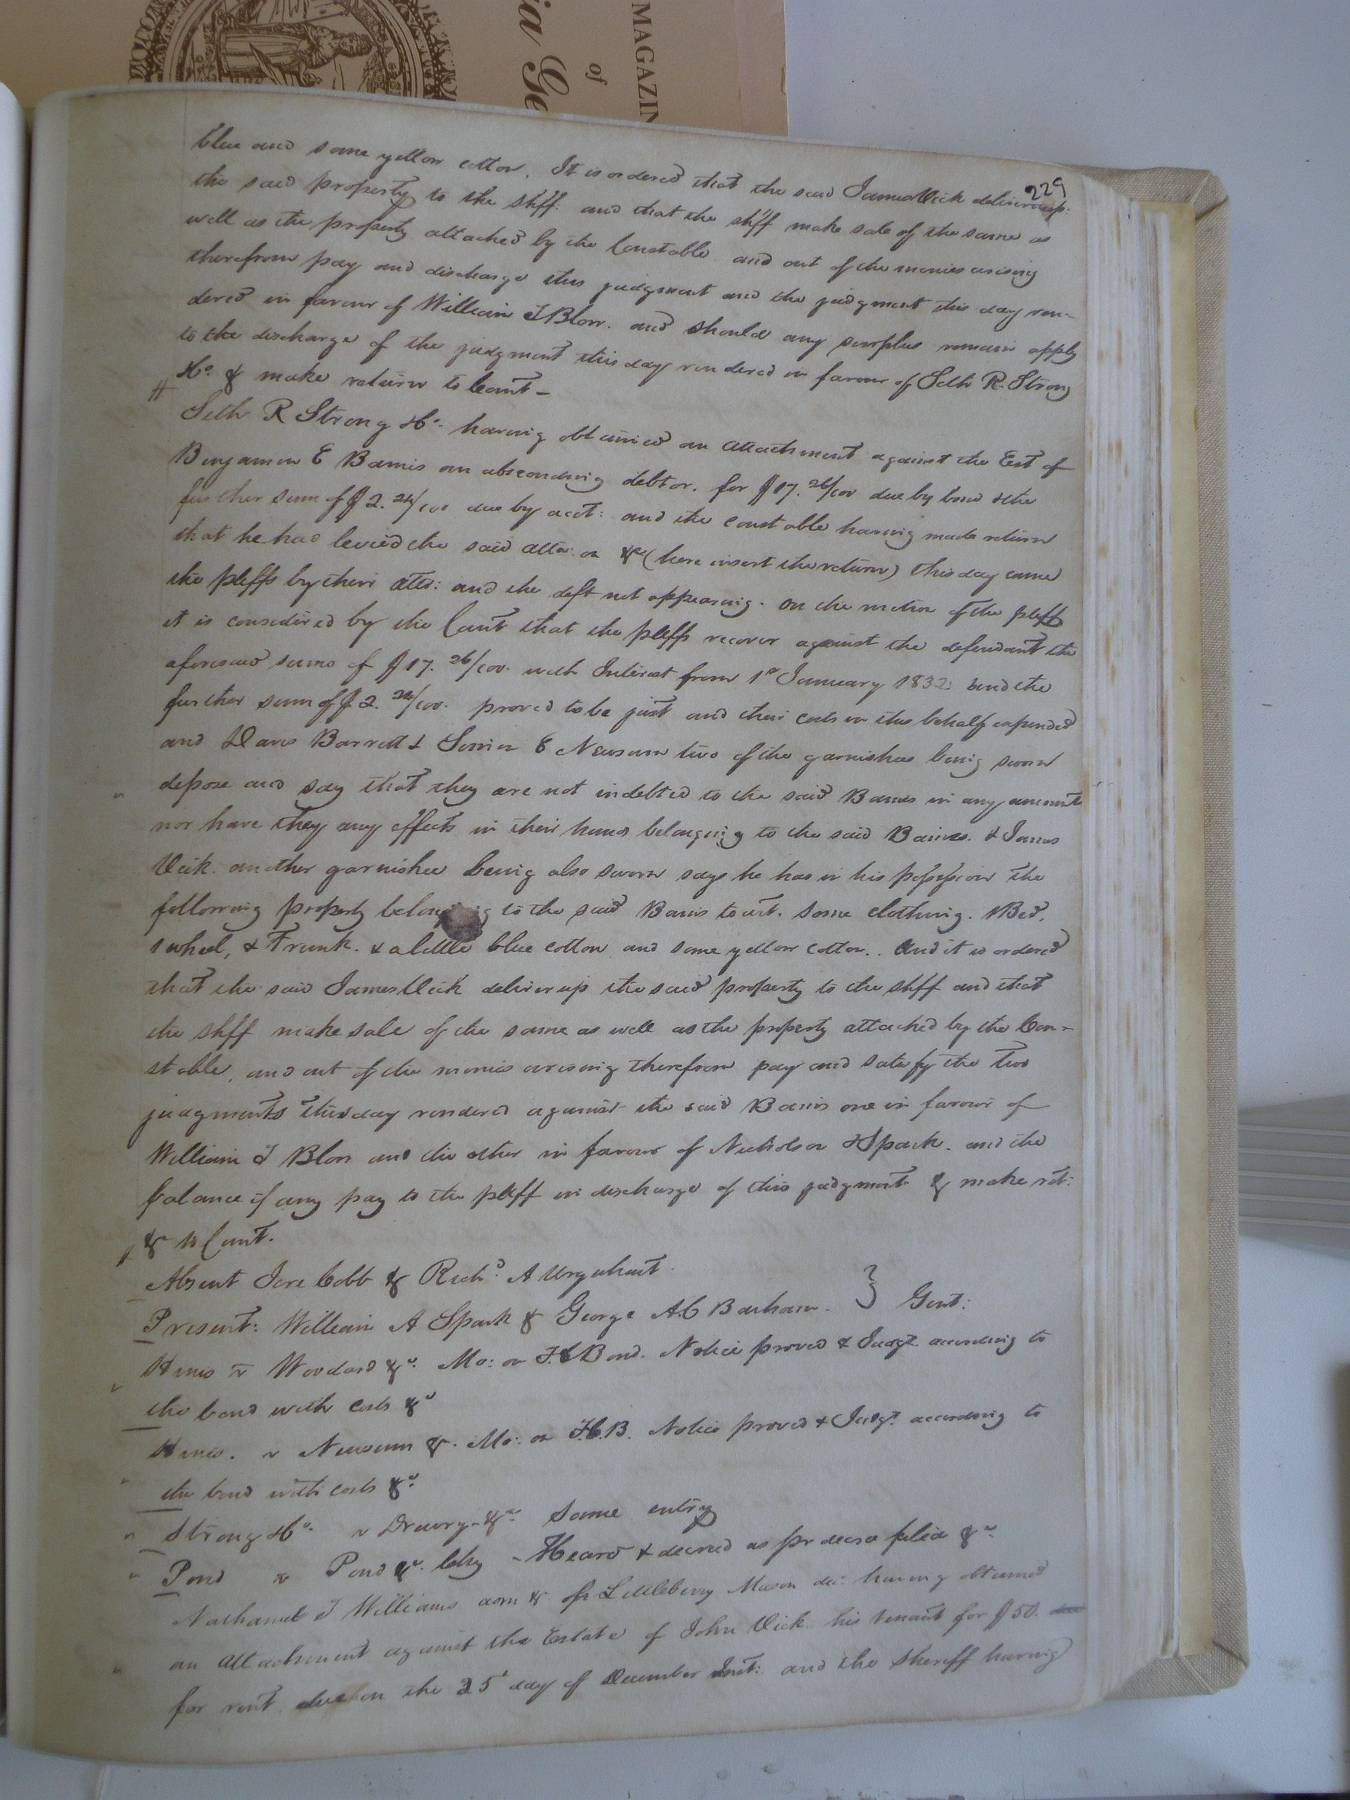 MAGAZIN
of
ia Ge
229
blue and some yellow cotton. It is ordered that the said James Vick deliver up
the said property to the shff. and that the shff make sale of the same as
well as the property attached by the Constable and out of the monies arising
therefrom pay and discharge this judgment and the judgment this day ren-
dered in favour of William J Blow. and should any surplus remain apply
to the discharge of the judgment this day rendered in favour of Seth R. Strong
&Co. & make return to Court—
Seth R Strong &Co. having obtained an attachment against the Est of
Benjamin E Banis an absconding debtor, for $17. 26/100 due by bond & the
further sum of $2. 24/100 due by acct: and the constable having made return
that he had levied the said atta: on &c (here insert the return) this day came
the pltffs by their atto: and the deft not appearing. on the motion of the pltff
it is considered by the Court that the pltffs recover against the defendant the
aforesaid sums of $17. 26/100. with Interest from 1st January 1832 and the
further sum of $2. 24/100. proved to be just and their costs in this behalf expended
and Davis Barrett & E Newsum two of the garnishees being sworn
depose and say that they are not indebted to the said Banis in any amount
nor have they any effects in their hands belonging to the said Banis. & James
Vick another garnishee being also sworn says he has in his possession the
following property belonging to the said Banis towit. some clothing. 1 Bed,
1 wheel, & Trunk. & a little blue cotton and some yellow cotton.. And it is ordered
that the said James Vick deliver up the said property to the shff and that
the shff make sale of the same as well as the property attached by the Con-
stable, and out of the monies arising therefrom pay and satisfy the two
judgments this day rendered against the said Banis one in favour of
William J Blow and the other in favour of Nicholson & Spark. and the
balance if any pay to the pltff in discharge of this judgment & make ret:
&c to Court.
Absent Jere Cobb & Richd. A Urquhart.
Present: William A Spark & George A.C Barham. } Gent:
Hines v Woodard &c. Mo: on F.C Bond. Notice proved & Judgt. according to
the bond with costs &c
Hines. v Newsum &c. Mo: on F.C.B. Notice proved & Judgt. according to
the bond with costs &c.
Strong &Co. v Drewry &c. Same entry
Pond v Pond &c. Chy – Heard & decreed as pr decree filed &c.
Nathaniel J Williams adm &c of Littleberry Mason dec: having obtained
an attachment against the Estate of John Vick his tenant for $50.
for rent due on the 25 day of December Inst: and the Sheriff having